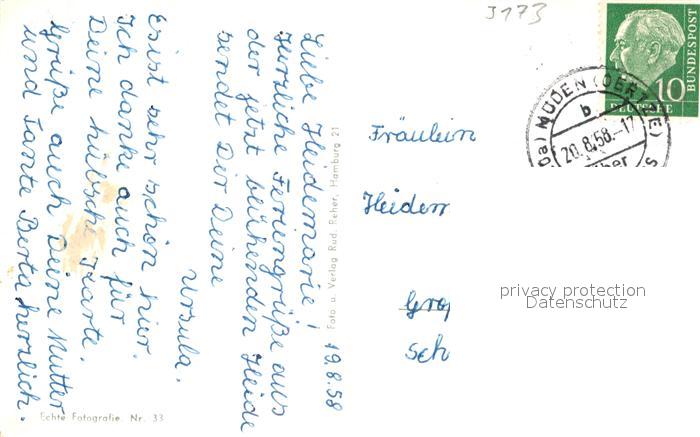 J173
BUNDESPOST
10
DEUTSCHE
MÜDEN (OERTZE)
b
20.8.58.-17
Fräulein
Heidem
Gro
Sch
privacy protection
Datenschutz
19.8.58
Liebe Heidemarie!
Herzliche Feriengrüße aus
der jetzt blühenden Heide
sendet Dir Deine
Ursula.
Es ist sehr schön hier.
Ich danke auch für
Deine hübsche Karte.
Grüße auch Deine Mutter
und Tante Berta herzlich.
Foto u. Verlag Rud. Reher, Hamburg 21
Echte Fotografie. Nr. 33